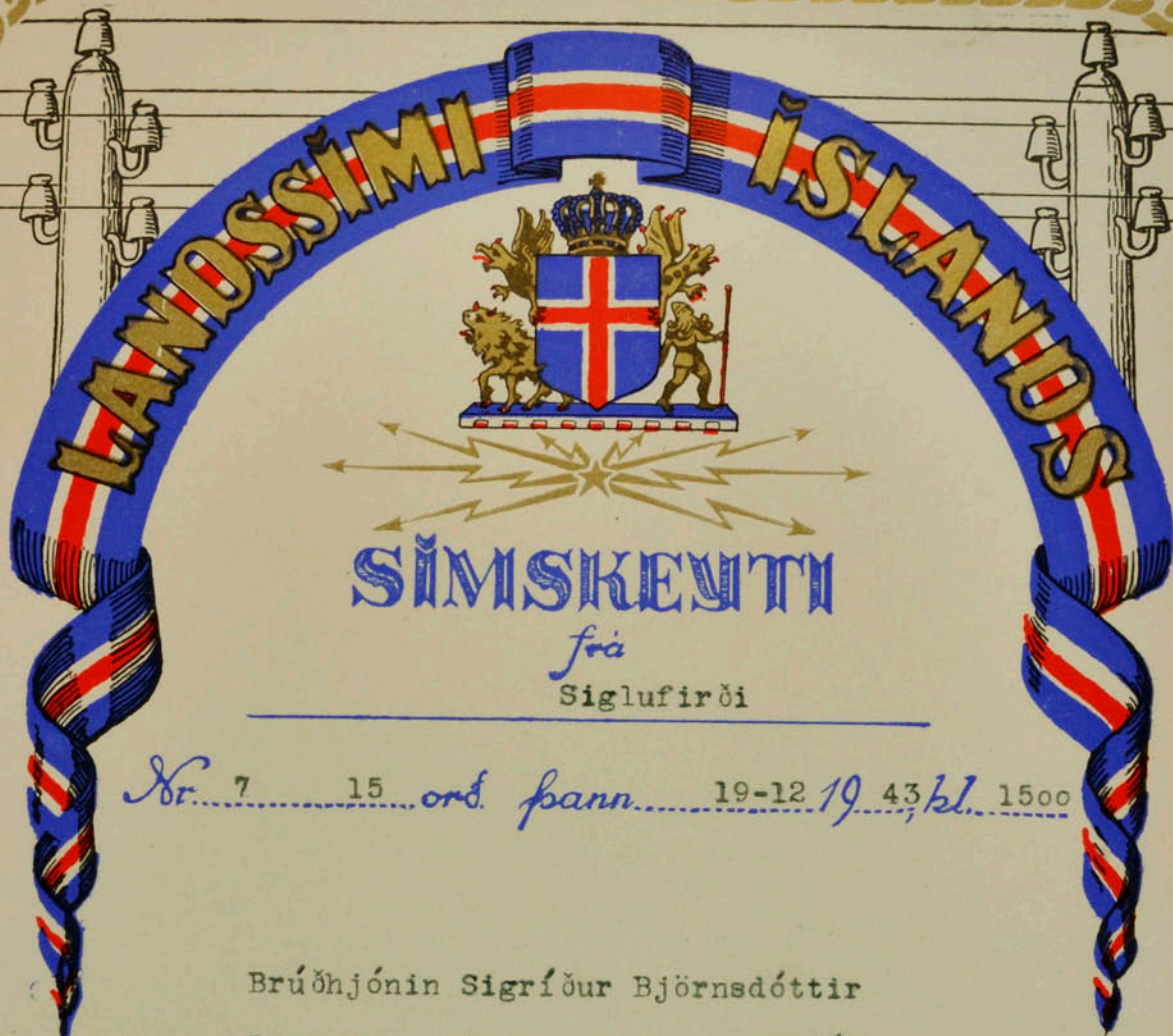 LANDSSÍMI ÍSLANDS
SÍMSKEYTI
frá
Siglufirði
Nr. 7 15 orð. þann 19-12 19 43, kl. 15oo
Brúðhjónin Sigríður Björnsdóttir